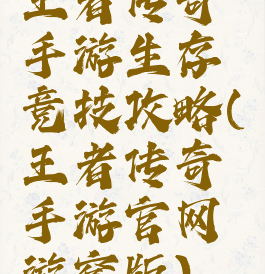 王者传奇
手游生存
竞技攻略(
王者传奇
手游官网
游窝版)